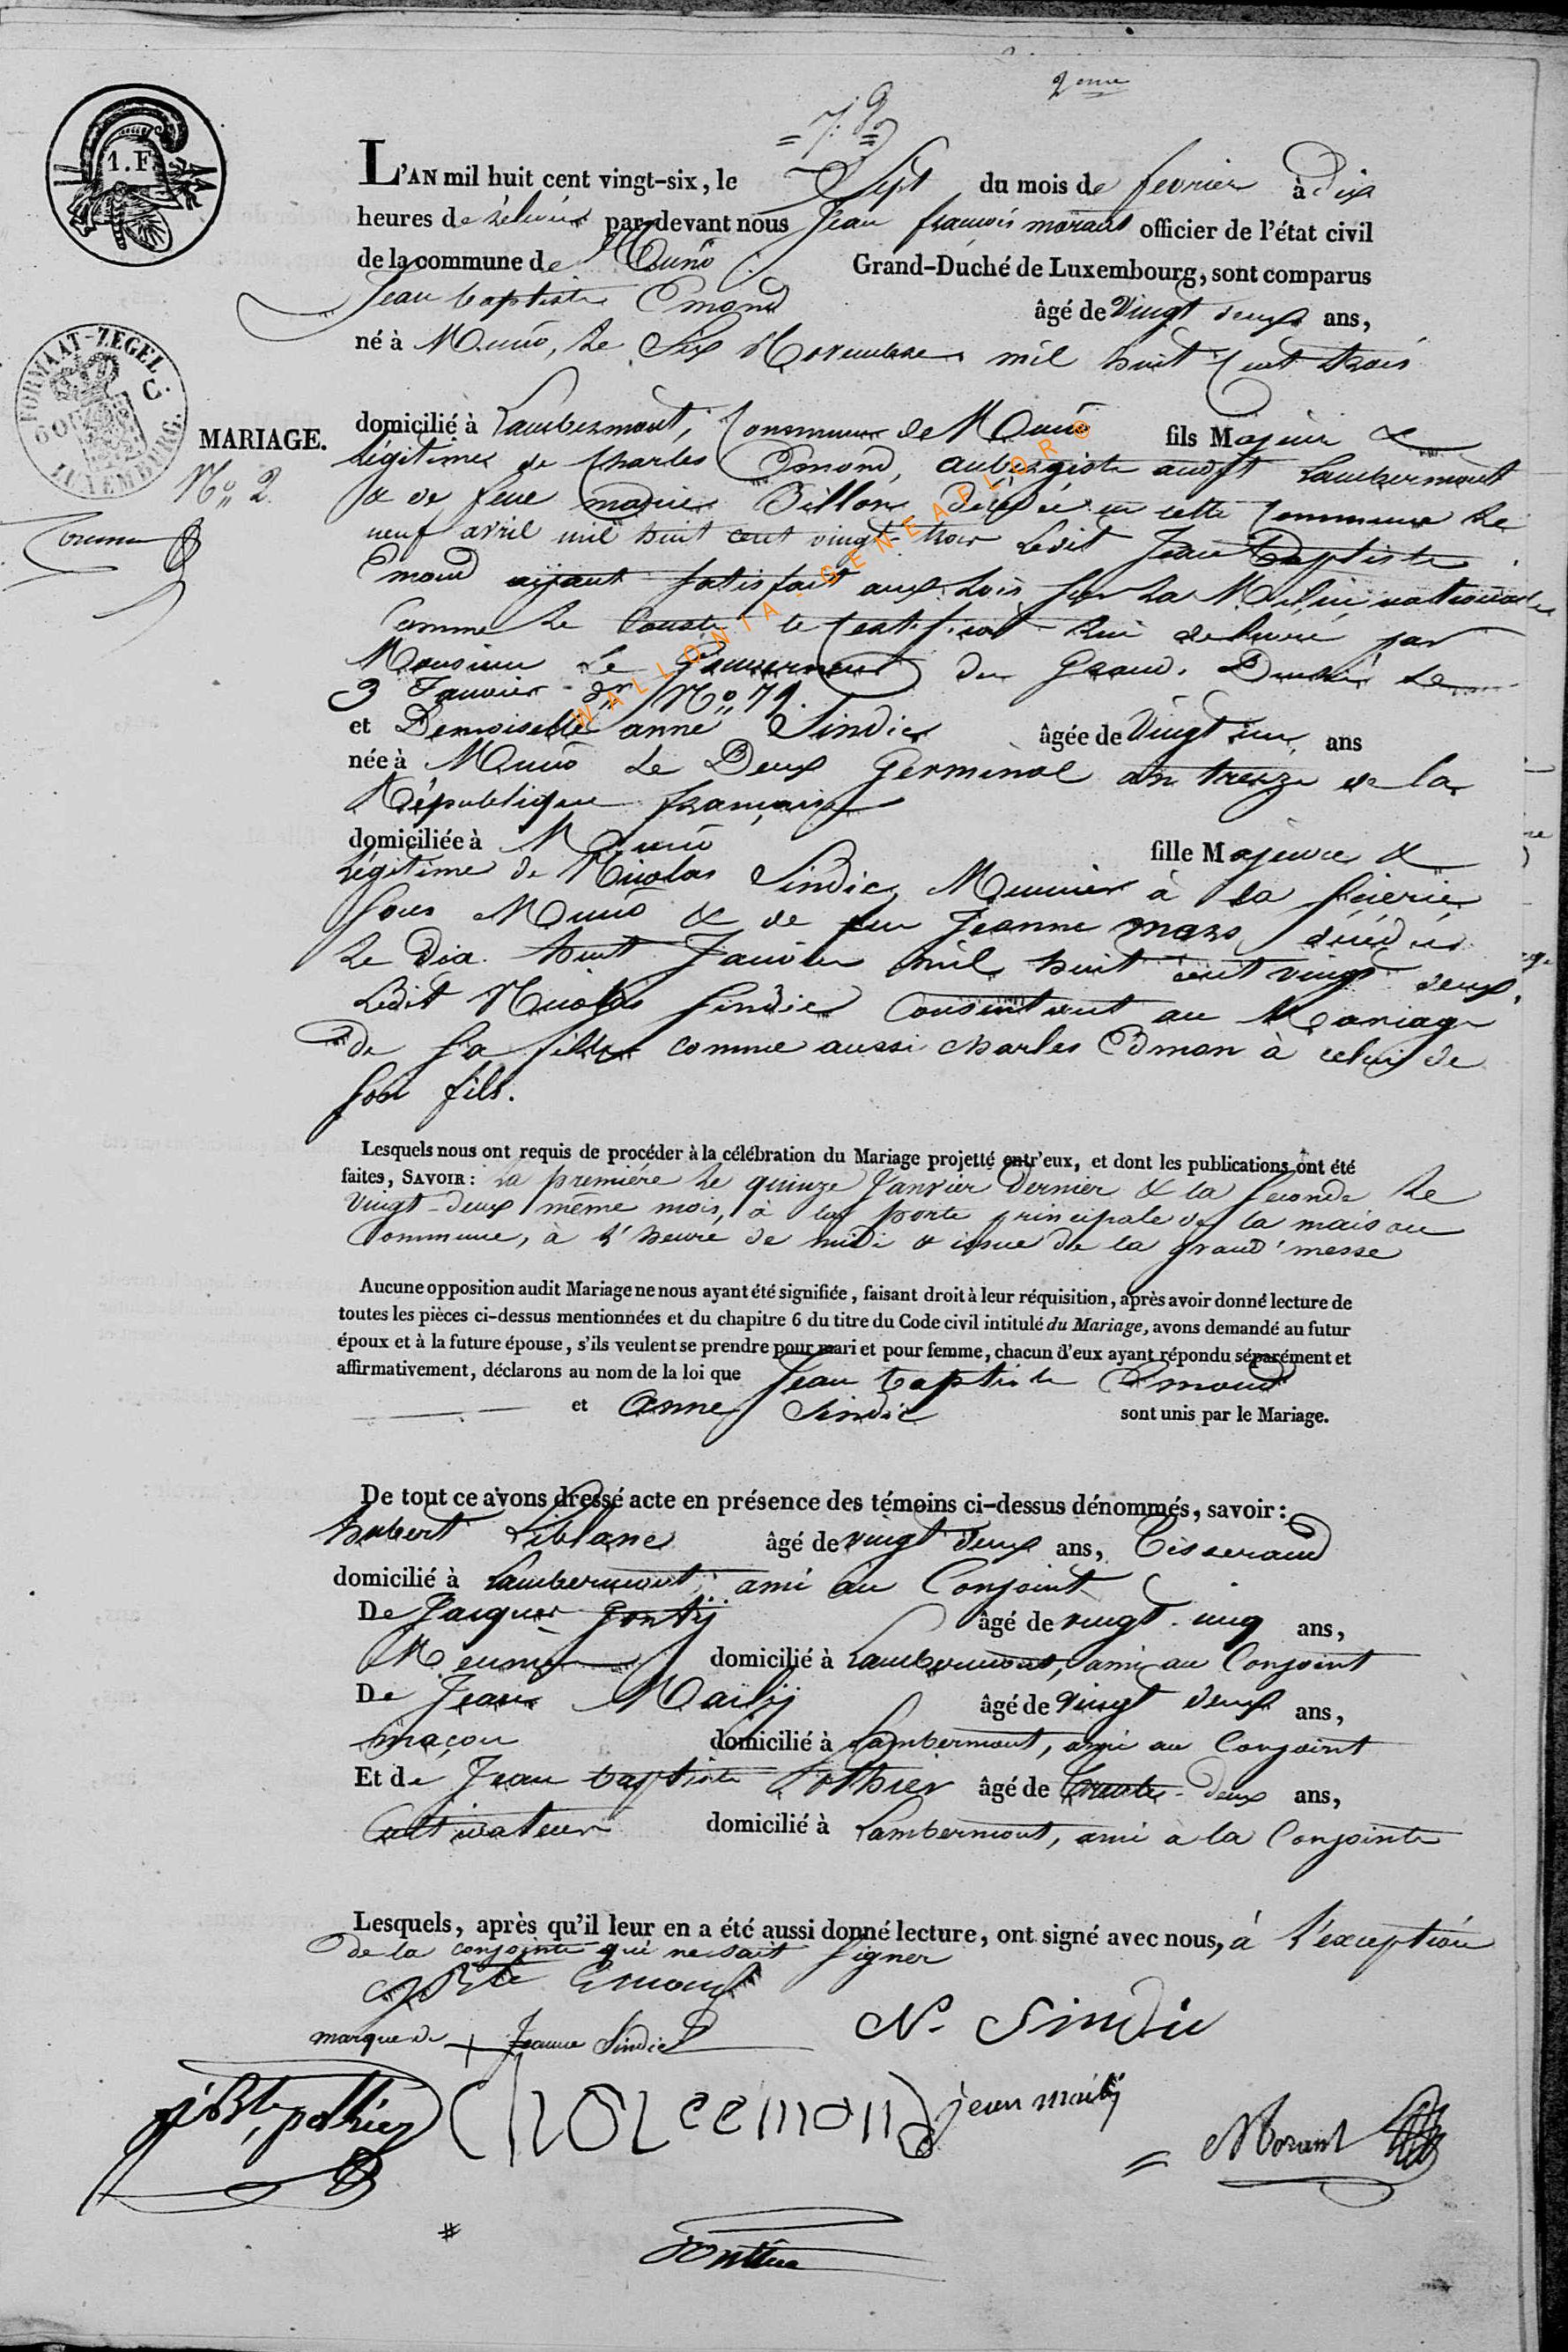 2eme
= 7. =
1. F
L'AN mil huit cent vingt-six, le Sept du mois de fevrier à dix
heures de par-devant nous Jean françois morant officier de l'état civil
de la commune de Muno Grand-Duché de Luxembourg, sont comparus
Jean baptiste Emond âgé de Vingt deux ans,
né à Muno, le Six Novembre mil huit Cent trois
FORMAAT-ZEGEL.
60 C
LUXEMBURG.
MARIAGE.
No 2
domicilié à Lambermont, Commune de Muno fils Majeur &
Légitime de Charles Emond, aubergiste audit Lambermont
& de feue marie Billon décédée en cette Commune le
neuf avril mil huit cent vingt-trois Ledit Jean Baptiste
Emond ayant satisfait aux Lois sur La Milice nationale
Comme le Conste le Certificat Lui delivré par
Monsieur Le Gouverneur du Grand-Duché le
3 Janvier dr No 71.
et Demoiselle anne Sindic âgée de Vingt un ans
née à Muno Le Deux Germinal an treize de la
République française
domiciliée à Muno fille Majeure &
Légitime de Nicolas Sindic, Meunier à la
sous Muno & de feu Jeanne mars décédée
Le dix huit Janvier mil huit cent vingt deux,
Ledit Nicolas Sindic Consentant au Mariage
de sa fille comme aussi charles Edmon à celui de
son fils.
Lesquels nous ont requis de procéder à la célébration du Mariage projetté entr'eux, et dont les publications ont été
faites, SAVOIR: la première le quinze Janvier dernier & la seconde le
Vingt-deux même mois, à la porte principale de la maison
Commune, à l'heure de midi & issue de la grand'messe
Aucune opposition audit Mariage ne nous ayant été signifiée, faisant droit à leur réquisition, après avoir donné lecture de
toutes les pièces ci-dessus mentionnées et du chapitre 6 du titre du Code civil intitulé du Mariage, avons demandé au futur
époux et à la future épouse, s'ils veulent se prendre pour mari et pour femme, chacun d'eux ayant répondu séparément et
affirmativement, déclarons au nom de la loi que Jean baptiste Emond
et Anne Sindic sont unis par le Mariage.
De tout ce avons dressé acte en présence des témoins ci-dessus dénommés, savoir:
hubert Leblanc âgé de vingt deux ans, Tisserand
domicilié à Lambermont, ami au Conjoint
De Jacques Gontij âgé de vingt-cinq ans,
Meunier domicilié à Lambermont, ami au Conjoint
De Jean Mailij âgé de Vingt deux ans,
maçon domicilié à Lambermont, ami au Conjoint
Et de Jean baptiste Pothier âgé de trente-deux ans,
Cultivateur domicilié à Lambermont, ami à la Conjointe
Lesquels, après qu'il leur en a été aussi donné lecture, ont signé avec nous, à l'exception
de la conjointe qui ne sait signer
JBte Emond
N. Sindic
marque de + Jeanne Sindic
jBte pothier
Charle emond
jean mailij
= Morant
WALLONIA - GENEAFLOR ©